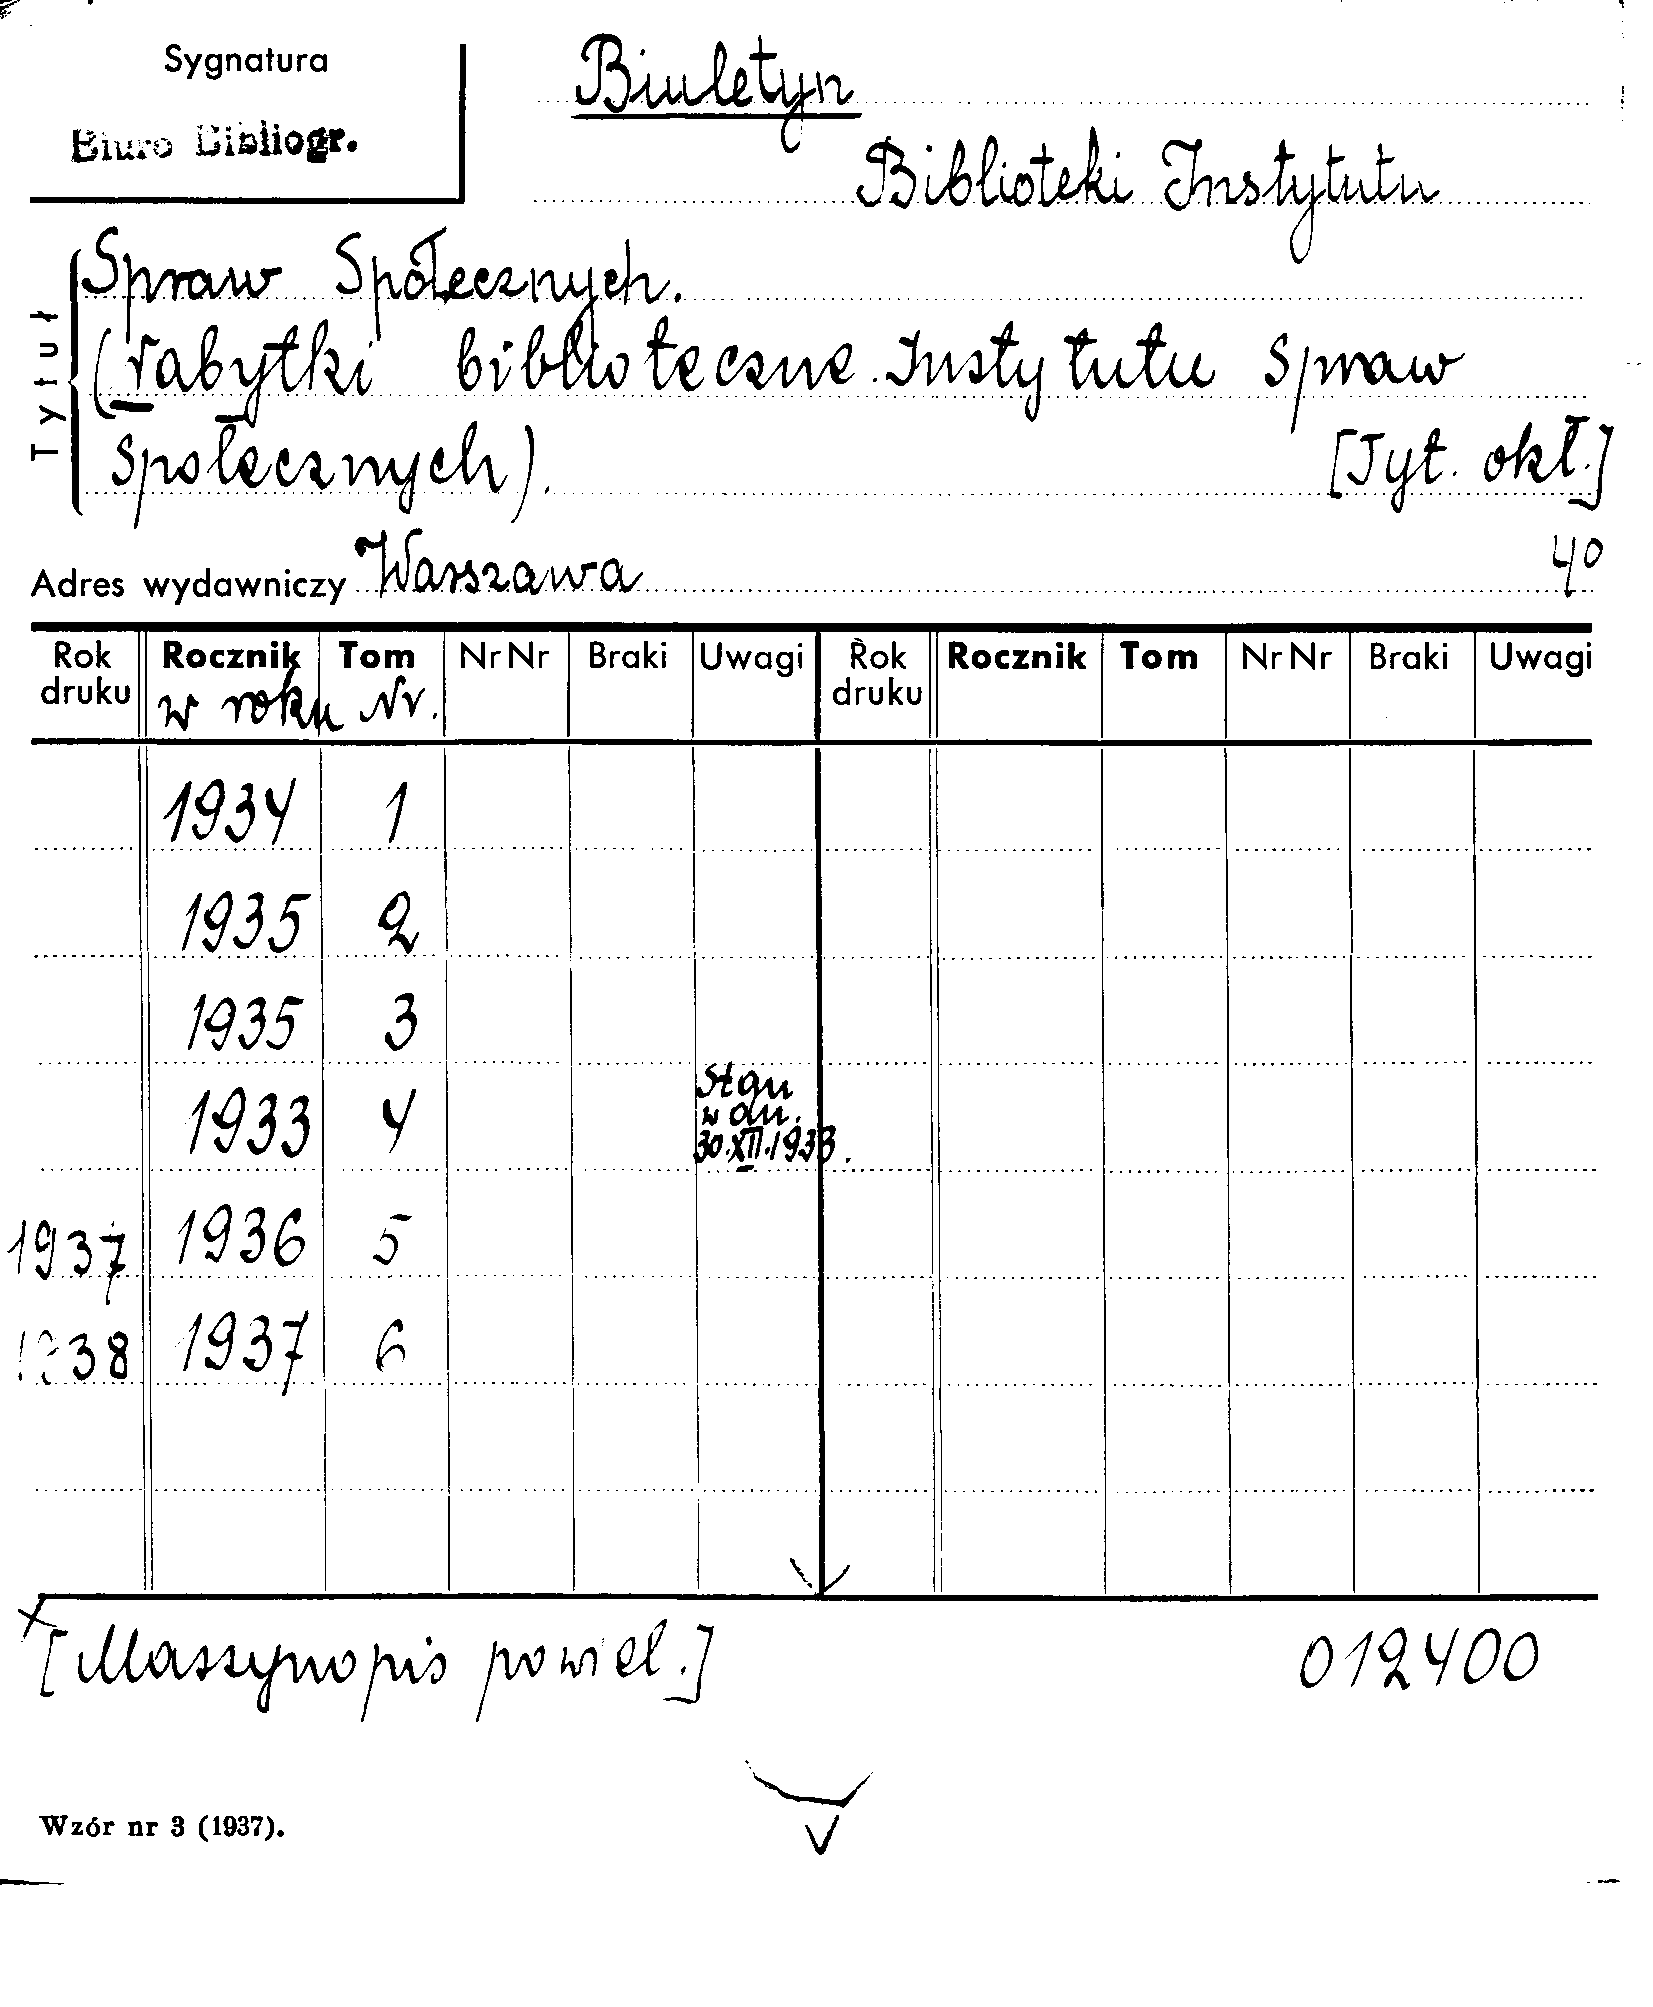 Sygnatura
Biuro Bibliogr.
Biuletyn
Biblioteki Instytutu
Spraw Społecznych.
Tytuł
biblioteczne Instytutu Spraw
Społecznych).
[Tyt. okł.]
Adres wydawniczy Warszawa
4°
Rok druku Rocznik Tom NrNr Braki Uwagi Rok druku Rocznik Tom NrNr Braki Uwagi
w roku Nr.
1934 1
1935 2
1935 3
1933 4 Stan
w dn.
30.XII.1933.
1937 1936 5
1938 1937 6
[Maszynopis powiel.]
012400
Wzór nr 3 (1937).